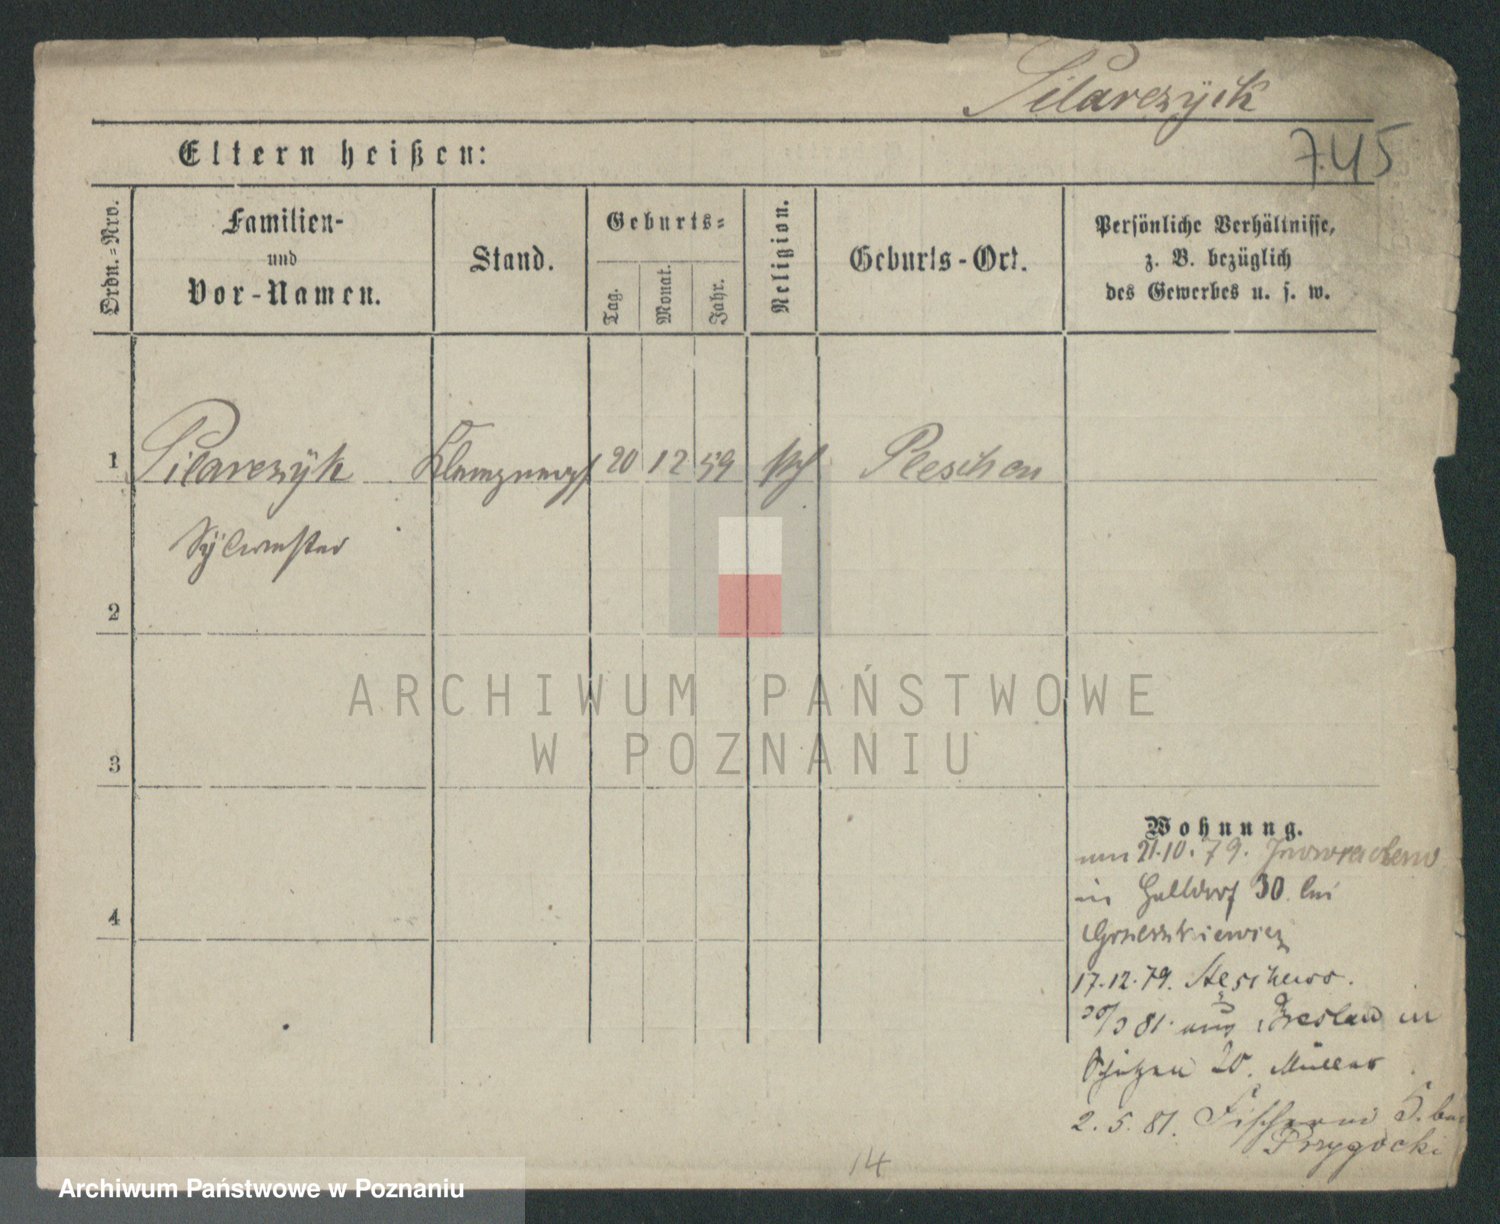 Pilarczyk
745
Eltern heißen:
Ordn.=Nro.
Familien-
und
Vor-Namen.
Stand.
Geburts=
Tag.
Monat.
Jahr.
Religion.
Geburts-Ort.
Persönliche Verhältnisse,
z. B. bezüglich
des Gewerbes u. s. w.
1 Pilarczyk Klempnergs 20 12 59 kth Pleschen
Sylwester
2
3
4
Wohnung.
um 21.10. 79. Inowraclaw
in Halldorf 30 bei
17.12.79.
30/3 81. aus Breslau in
Schützen 20. Müller
2. 5. 81. Fischerei 5. bei
Przygocki
14
ARCHIWUM PAŃSTWOWE
W POZNANIU
Archiwum Państwowe w Poznaniu